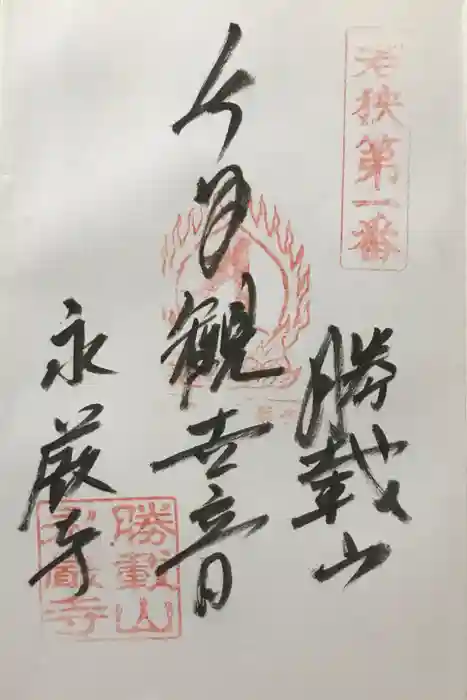 若狭第一番
勝載山
月観世音
永厳寺
勝載山
永厳寺